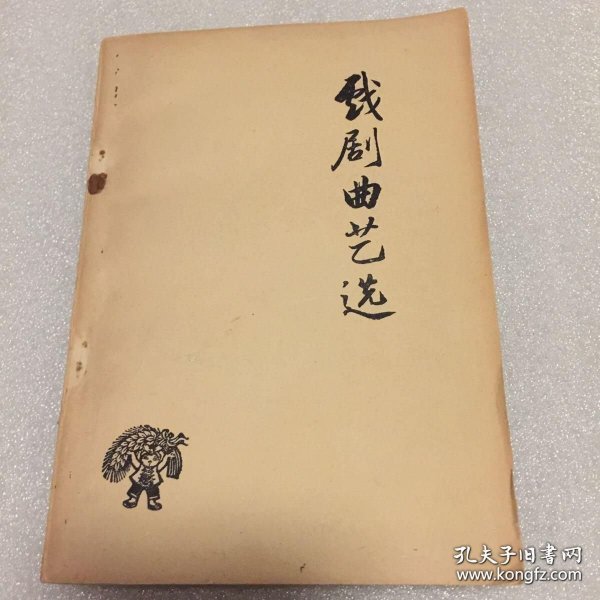 戏剧曲艺选
孔夫子旧书网
www.kongfz.com